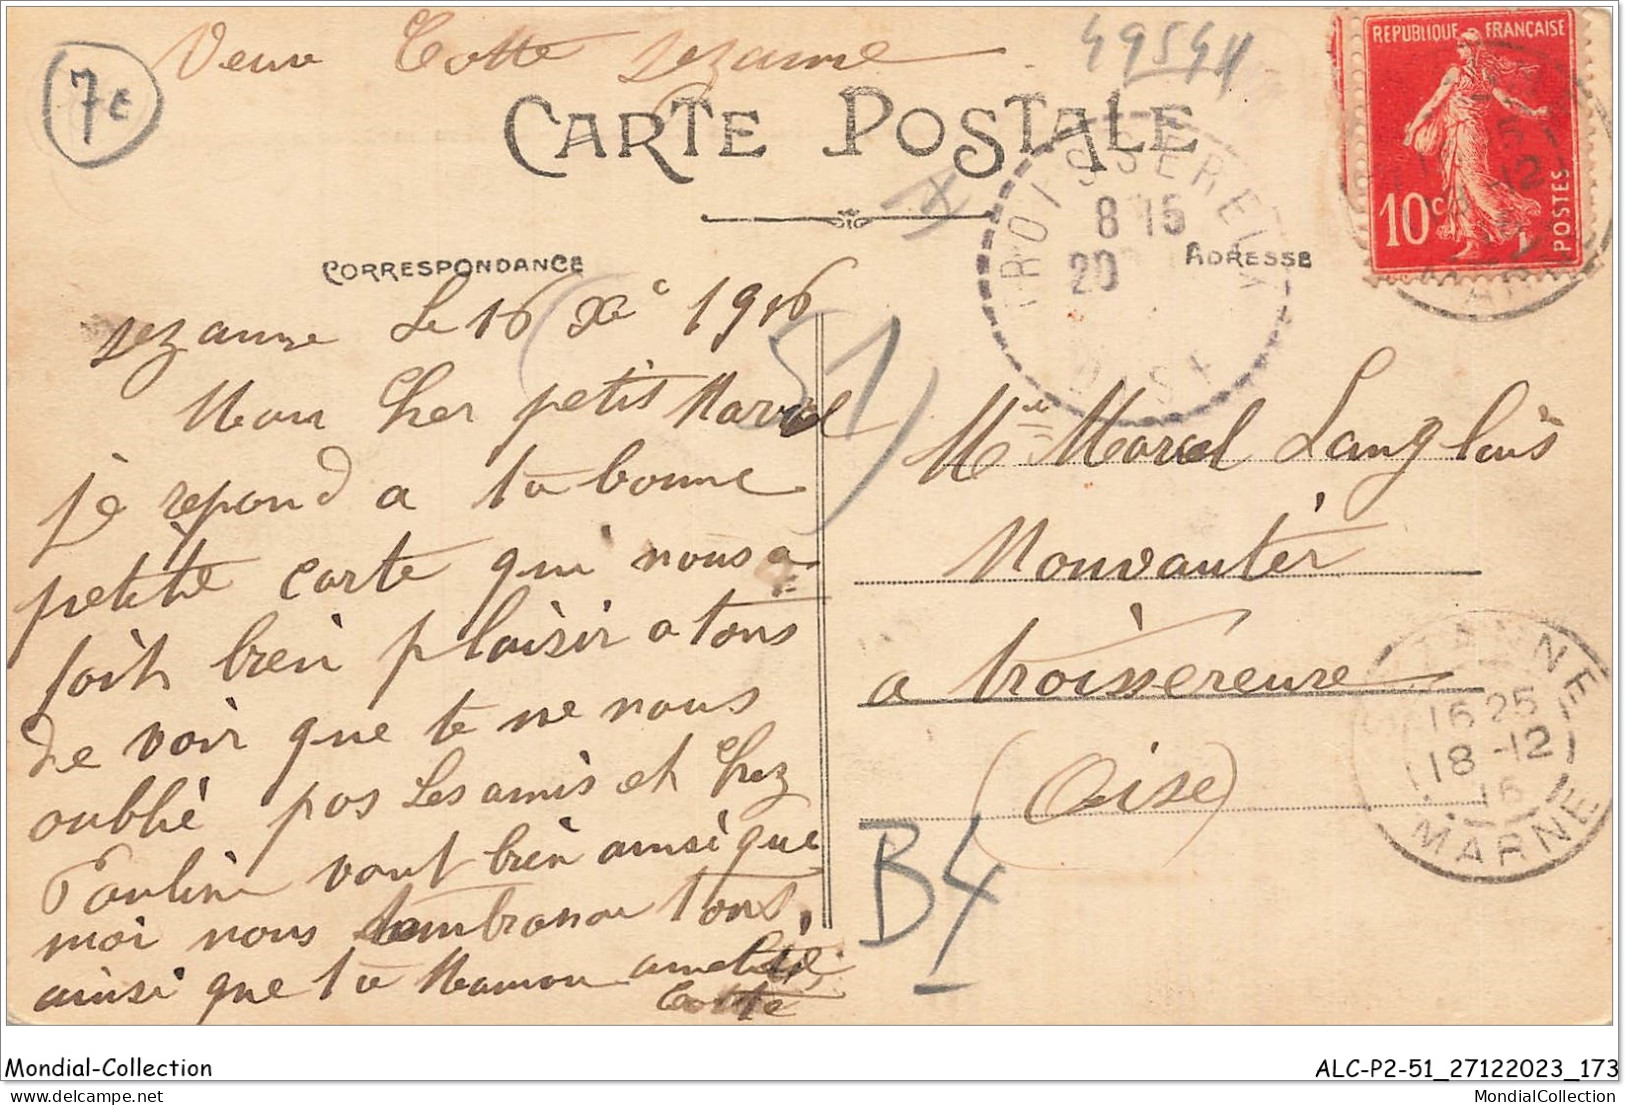 Veuve Cotte sezanne
49544
7e
CARTE POSTALE
REPUBLIQUE FRANÇAISE
10c
POSTES
CORRESPONDANCE
ADRESSE
TROISSEREUX
8 15
20
OISE
sezanne Le 16 Xe 1916
(51)
Mon cher petit Marcel
je repond a ta bonne
petite carte qui nous a
fait bien plaisir a tous
de voir que te ne nous
oublié pas Les amis et chez
Pauline vont bien ainsi que
moi nous tembrasson tous,
ainsi que ta Maman amelie
Cotte
Mr Marcel Langlois
Mouvanter
a troissereuse
(Oise)
B4
SEZANNE
16 25
18 -12
16
MARNE
Mondial-Collection
ALC-P2-51_27122023_173
MondialCollection